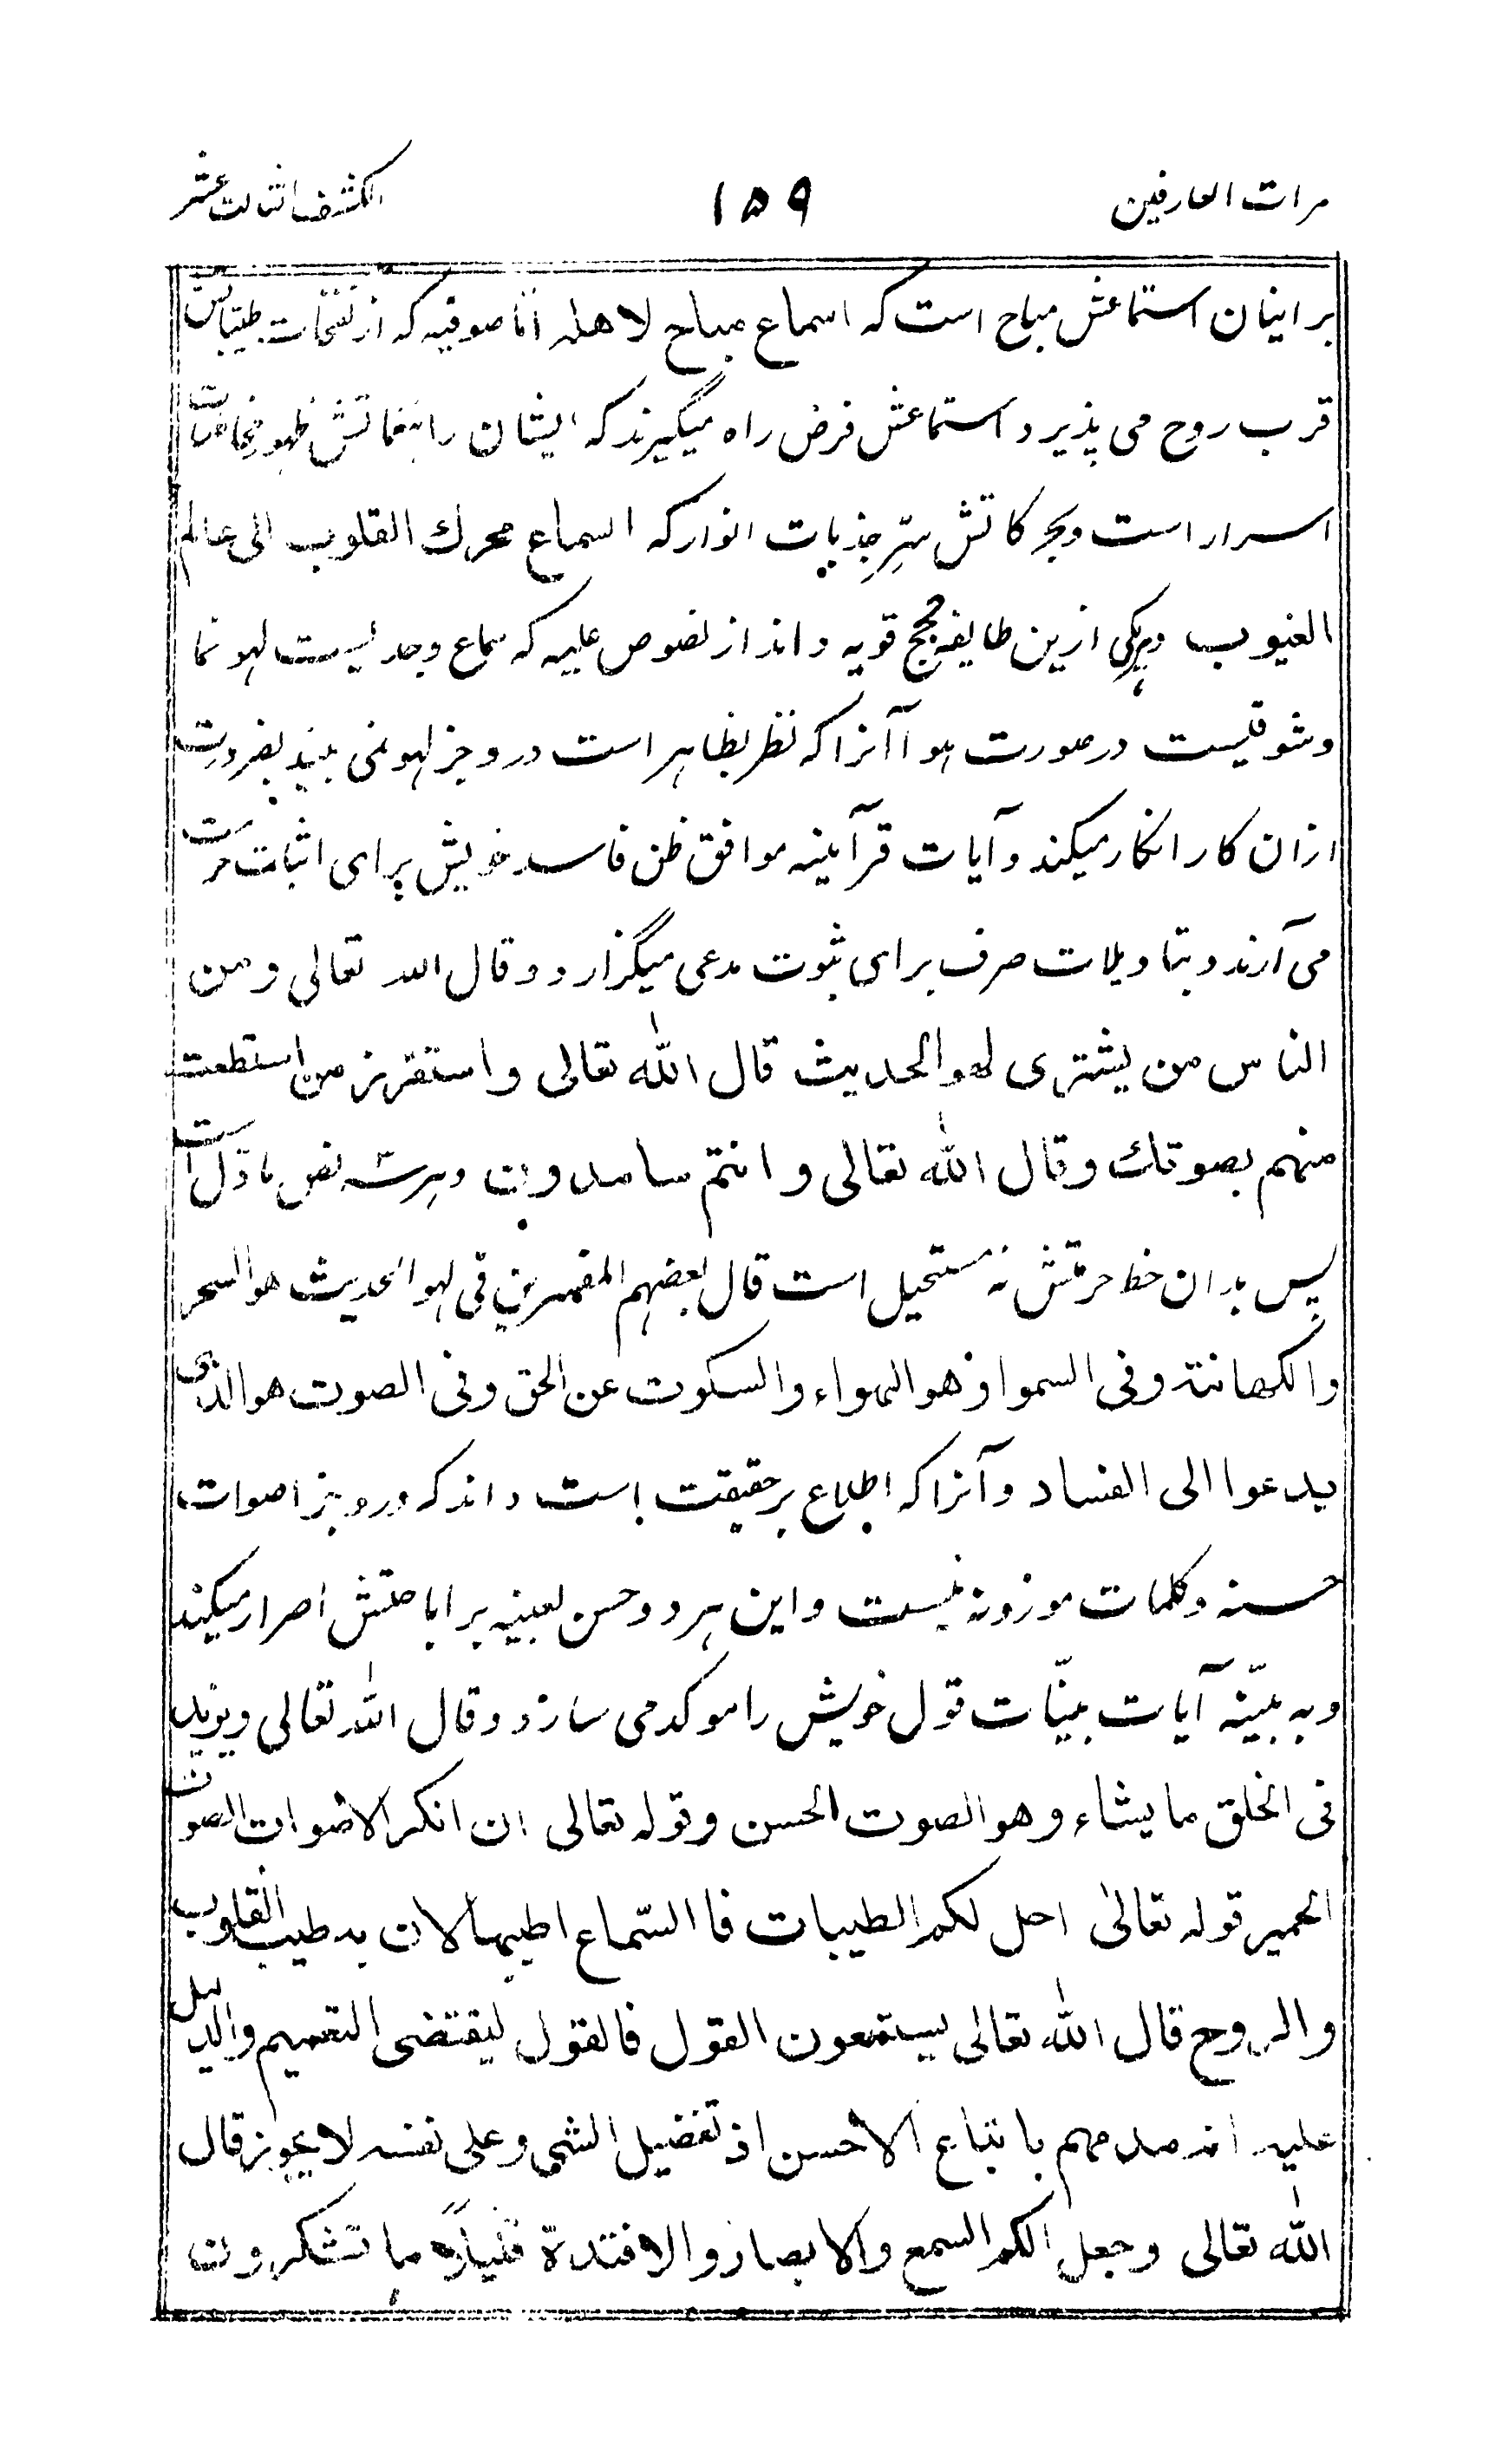 مرات العارفین ۱۵۹ الکشف الثالث عشر
بر اینان استماعش مباح است که اسماع مباح لاهله امّا صوفیه که از نفحات طیباتش
قرب روح می پذیرد استماعش فرض راه میگیرند که ایشان را نغماتش ظهور مخاطبات
اسرار است و بحرکاتش سرِّ جذبات انوار که السماع محرك القلوب الی عالم
الغیوب و هریکی ازین طایفه حجج قویه دانداز نصوص علیه که سماع وجد لیست لهو نما
و شوقلیست در صورت هوا آنرا که نظر بظاهر است درو جز لهو نمی بیند بضرورت
ازان کار انکار میکند و آیات قرآنیه موافق ظن فاسد خویش برای اثبات حرمت
می آرند و بتاویلات صرف برای ثبوت مدعی میگزارد و قال الله تعالی و من
الناس من یشتری لهو الحدیث قال الله تعالی و استفزز من استطعت
منهم بصوتك و قال الله تعالی و انتم سامدون و هر سه نص ماوّل است
پس بدان خط حرمتش نه مستحیل است قال بعضهم المفسرین فی لهو الحدیث هو السحر
والکهانة و فی السمواد هو الهواء والسکوت عن الحق و فی الصوت هو الذی
یدعوا الی الفساد و آنرا که اطلاع بر حقیقت است داند که درو جز اصوات
حسنه و کلمات موزونه نیست و این هر دو حسن لعینه بر اباحتش اصرار میکند
و به بیّنه آیات بیّنات قول خویش را موکد می سازد و قال الله تعالی و یزید
فی الخلق ما یشاء و هو الصوت الحسن و قوله تعالی ان انکر الاصوات لصوت
الحمیر قوله تعالیٰ احل لکم الطیبات فا السّماع اطیبها لان به طیب القلوب
والروح قال الله تعالی یستمعون القول فالقول لیقتضی التعمیم والدلیل
علیه انه مدحهم باتباع الاحسن اذ تفضیل الشی و علی نفسه لا یجوز قال
الله تعالی و جعل لکم السمع والابصار والافئدة قلیلاً ما تشکرون